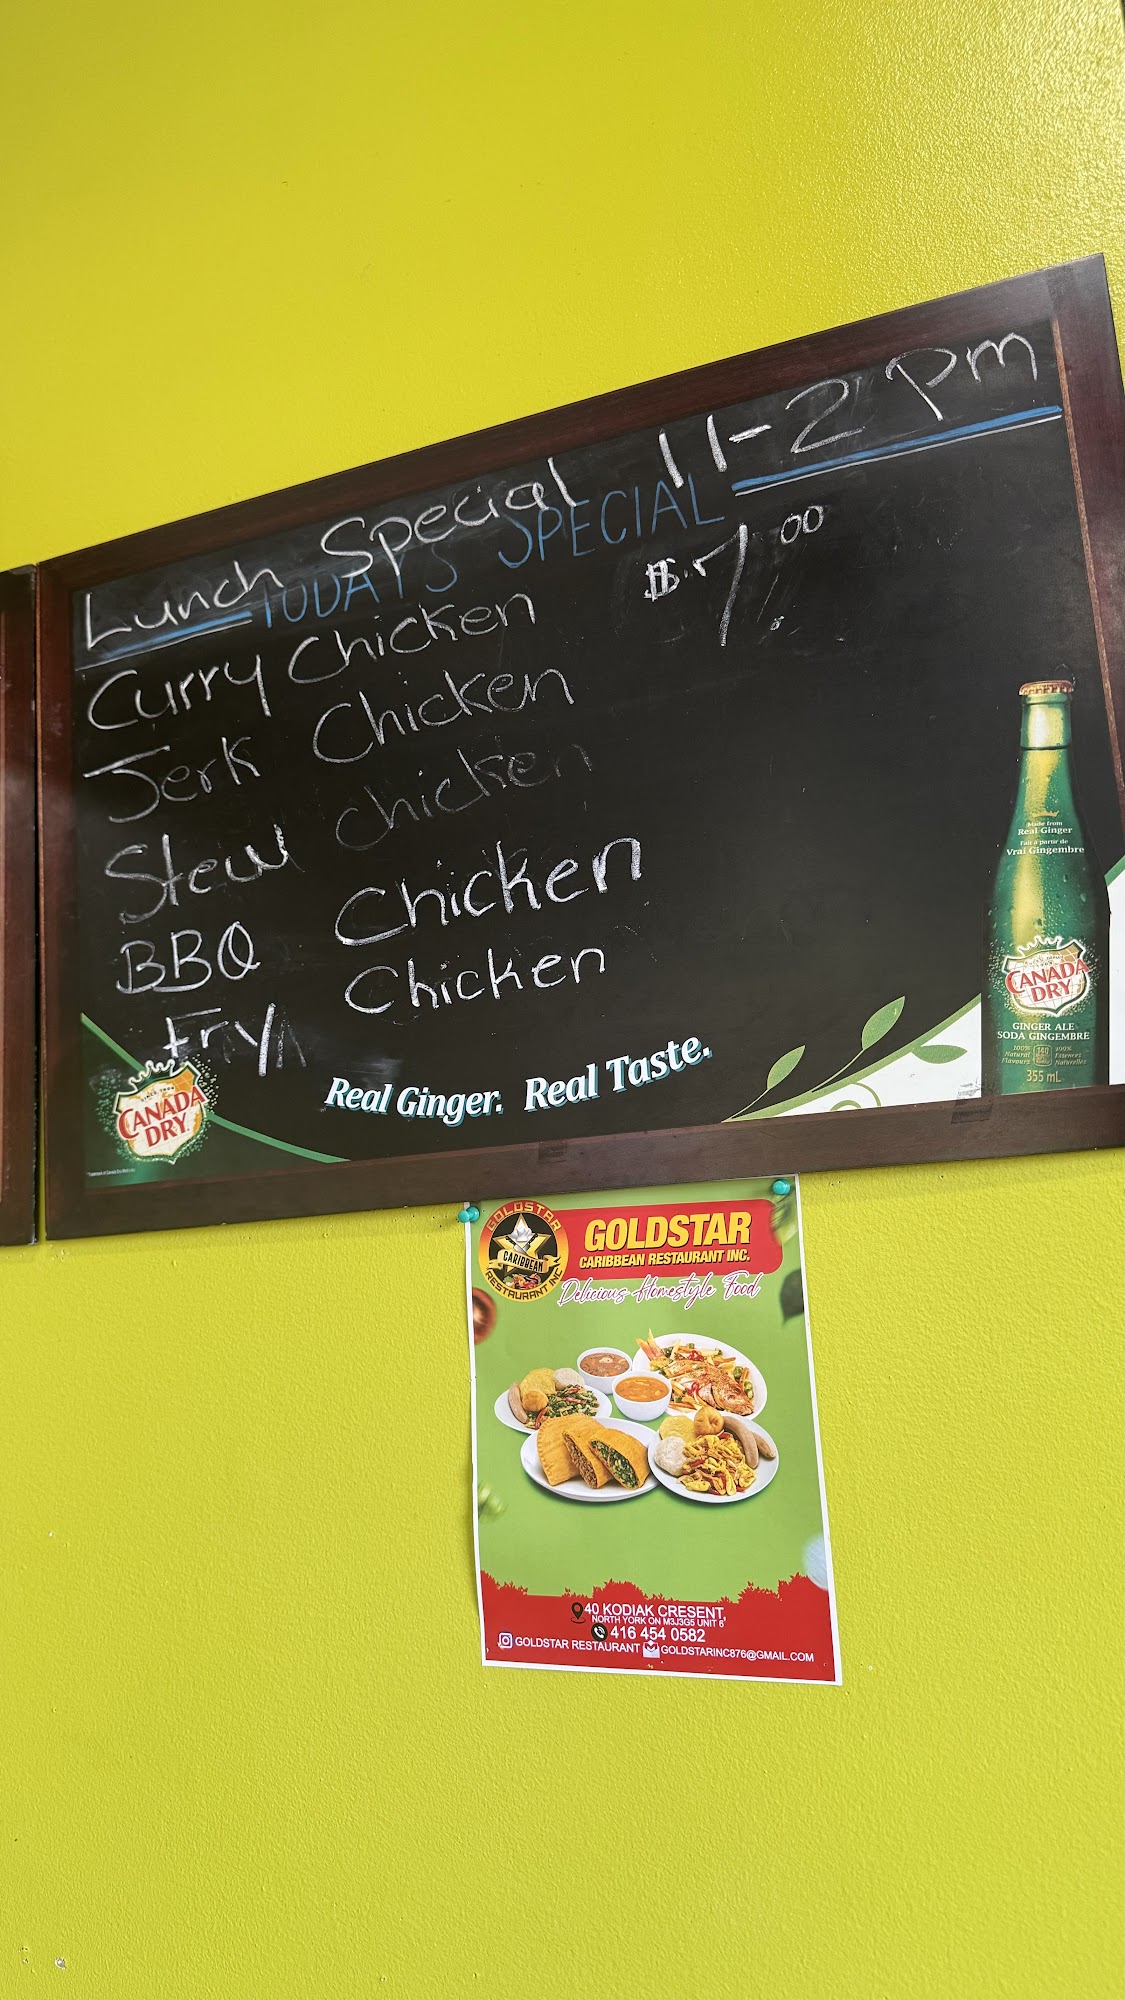 Lunch Special 11-2 Pm
TODAY'S SPECIAL
Curry Chicken $7.00
Jerk Chicken
Stew chicken
BBQ Chicken
Fry Chicken
Made from
Real Ginger
Fait à partir de
Vrai Gingembre
CANADA
DRY
GINGER ALE
SODA GINGEMBRE
100% Natural Flavours
140
100% Essences Naturelles
355 mL
CANADA
DRY
Real Ginger. Real Taste.
GOLDSTAR
CARIBBEAN
RESTAURANT INC
GOLDSTAR
CARIBBEAN RESTAURANT INC.
Delicious Homestyle Food
40 KODIAK CRESENT,
NORTH YORK ON M3J3G5 UNIT 6
416 454 0582
GOLDSTAR RESTAURANT GOLDSTARINC876@GMAIL.COM